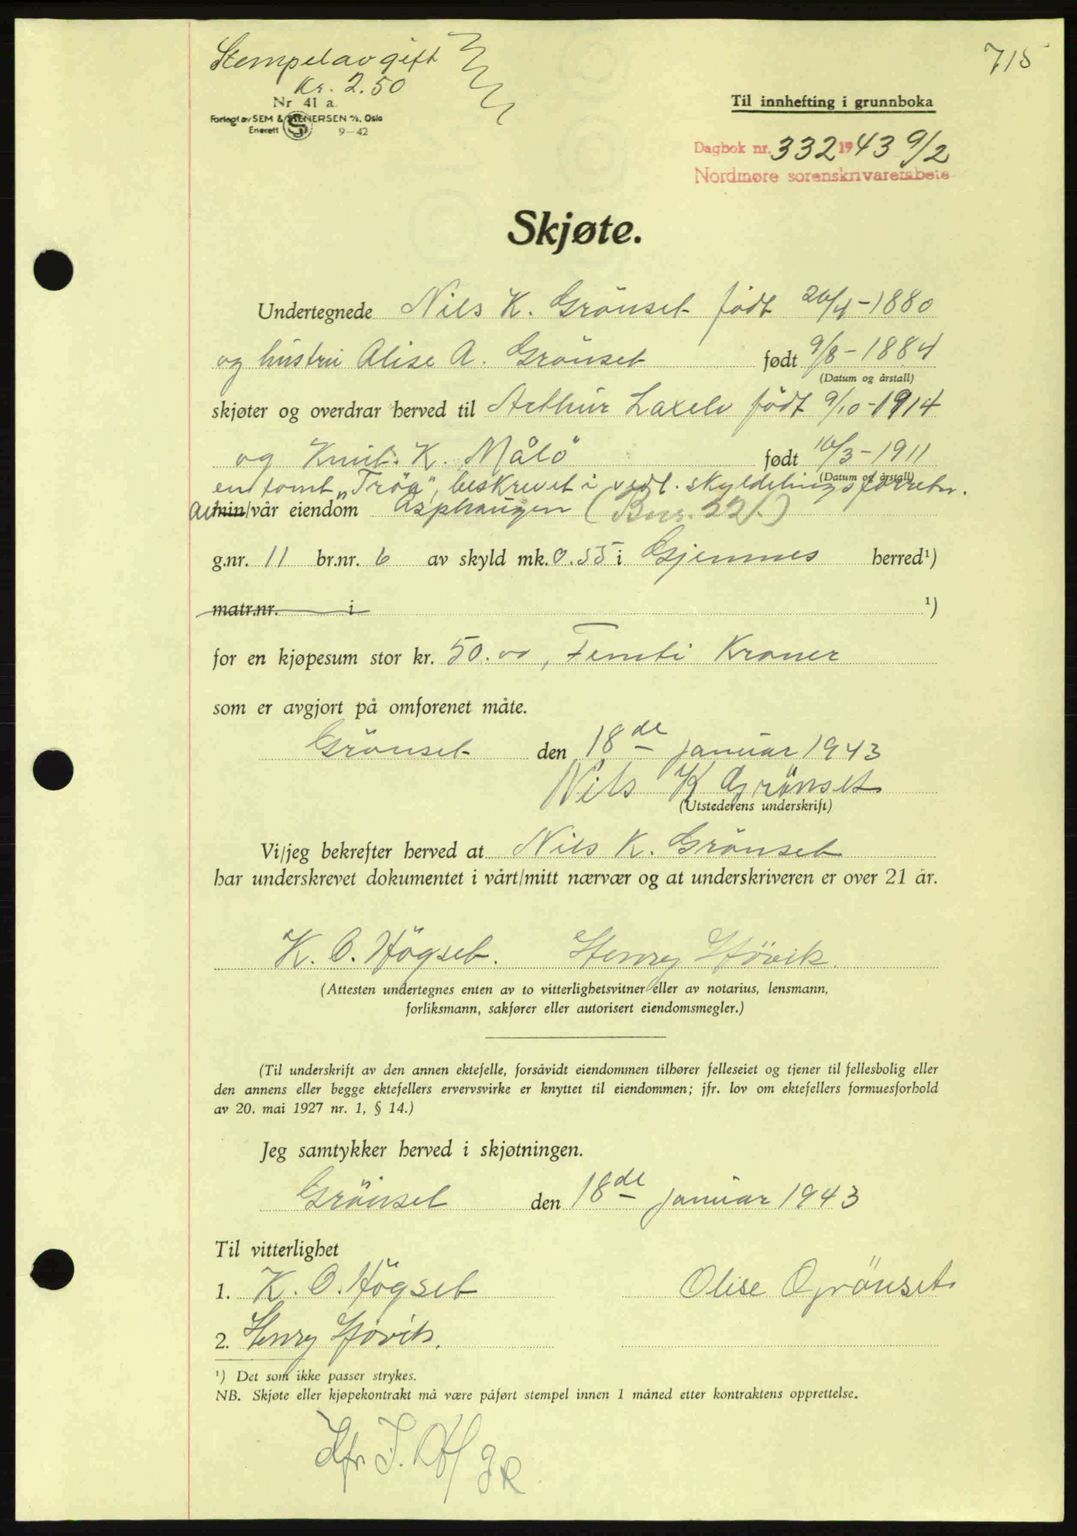 715
Stempelavgift
Kr. 2.50
Nr 41 a.
Forlagt av SEM & STENERSEN A/S, Oslo
Enerett 9-42
Til innhefting i grunnboka
Dagbok nr. 332 1943 9/2
Nordmøre sorenskrivarembete
Skjøte.
Undertegnede Nils K. Grönset født 20/4-1880
og hustru Alise A. Grönset født 9/8-1884
(Datum og årstall)
skjøter og overdrar herved til Arthur Laxelv født 9/10-1914
og Knut K. Målö født 10/3-1911
(Datum og årstall)
en tomt „Tröa", beskrevet i vedl. skyldelingsforretn.
av min/vår eiendom Asphaugen (Bnr. 22.)
g.nr. 11 br.nr. 6 av skyld mk. 0.55 i Gjemnes herred¹)
matr.nr. i ¹)
for en kjøpesum stor kr. 50.00, Femti Kroner
som er avgjort på omforenet måte.
Grönset den 18de januar 1943
Nils K Grönset
(Utstederens underskrift)
Vi/jeg bekrefter herved at Nils K. Grönset
har underskrevet dokumentet i vårt/mitt nærvær og at underskriveren er over 21 år.
K. O. Högset. Henry Hövik.
(Attesten undertegnes enten av to vitterlighetsvitner eller av notarius, lensmann,
forliksmann, sakfører eller autorisert eiendomsmegler.)
(Til underskrift av den annen ektefelle, forsåvidt eiendommen tilhører felleseiet og tjener til fellesbolig eller
den annens eller begge ektefellers ervervsvirke er knyttet til eiendommen; jfr. lov om ektefellers formuesforhold
av 20. mai 1927 nr. 1, § 14.)
Jeg samtykker herved i skjøtningen.
Grönset den 18de januar 1943
Til vitterlighet
1. K. O. Högset Olise Grönset
2. Henry Hövik.
¹) Det som ikke passer strykes.
NB. Skjøte eller kjøpekontrakt må være påført stempel innen 1 måned etter kontraktens opprettelse.